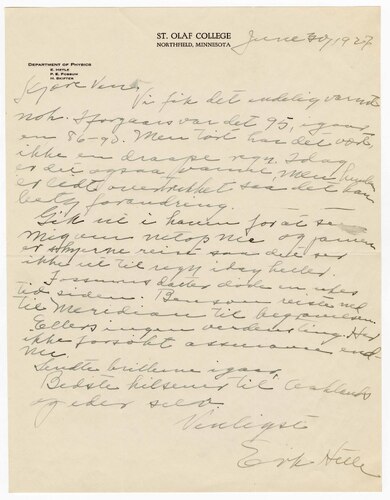 ST. OLAF COLLEGE
NORTHFIELD, MINNESOTA
June 30, 1927
DEPARTMENT OF PHYSICS
E. HETLE
P. E. FOSSUM
H. SKIFTER
Kjære Ven,
Vi fik det endelig varmt
nok. Iforgaars var det 95, igaar
en 86-90. Men tørt har det vært
ikke en draape regn. Idag
er det ogsaa varmt. Men
er ledt overtrukket saa det kan
bety forandring.
Gik ut i haven for at se
netop nu og
er reist saa det ser
ikke ut til regn idag heller.
Fossums datter døde en ukes
tid siden. Benson reiste ned
til Meridean til begravelsen.
Ellers ingen verdens ting. Har
ikke forsøkt end
nu.
Sendte brillerne igaar.
Bedste hilsener til
og eder selv
Venligst
Erik Hetle